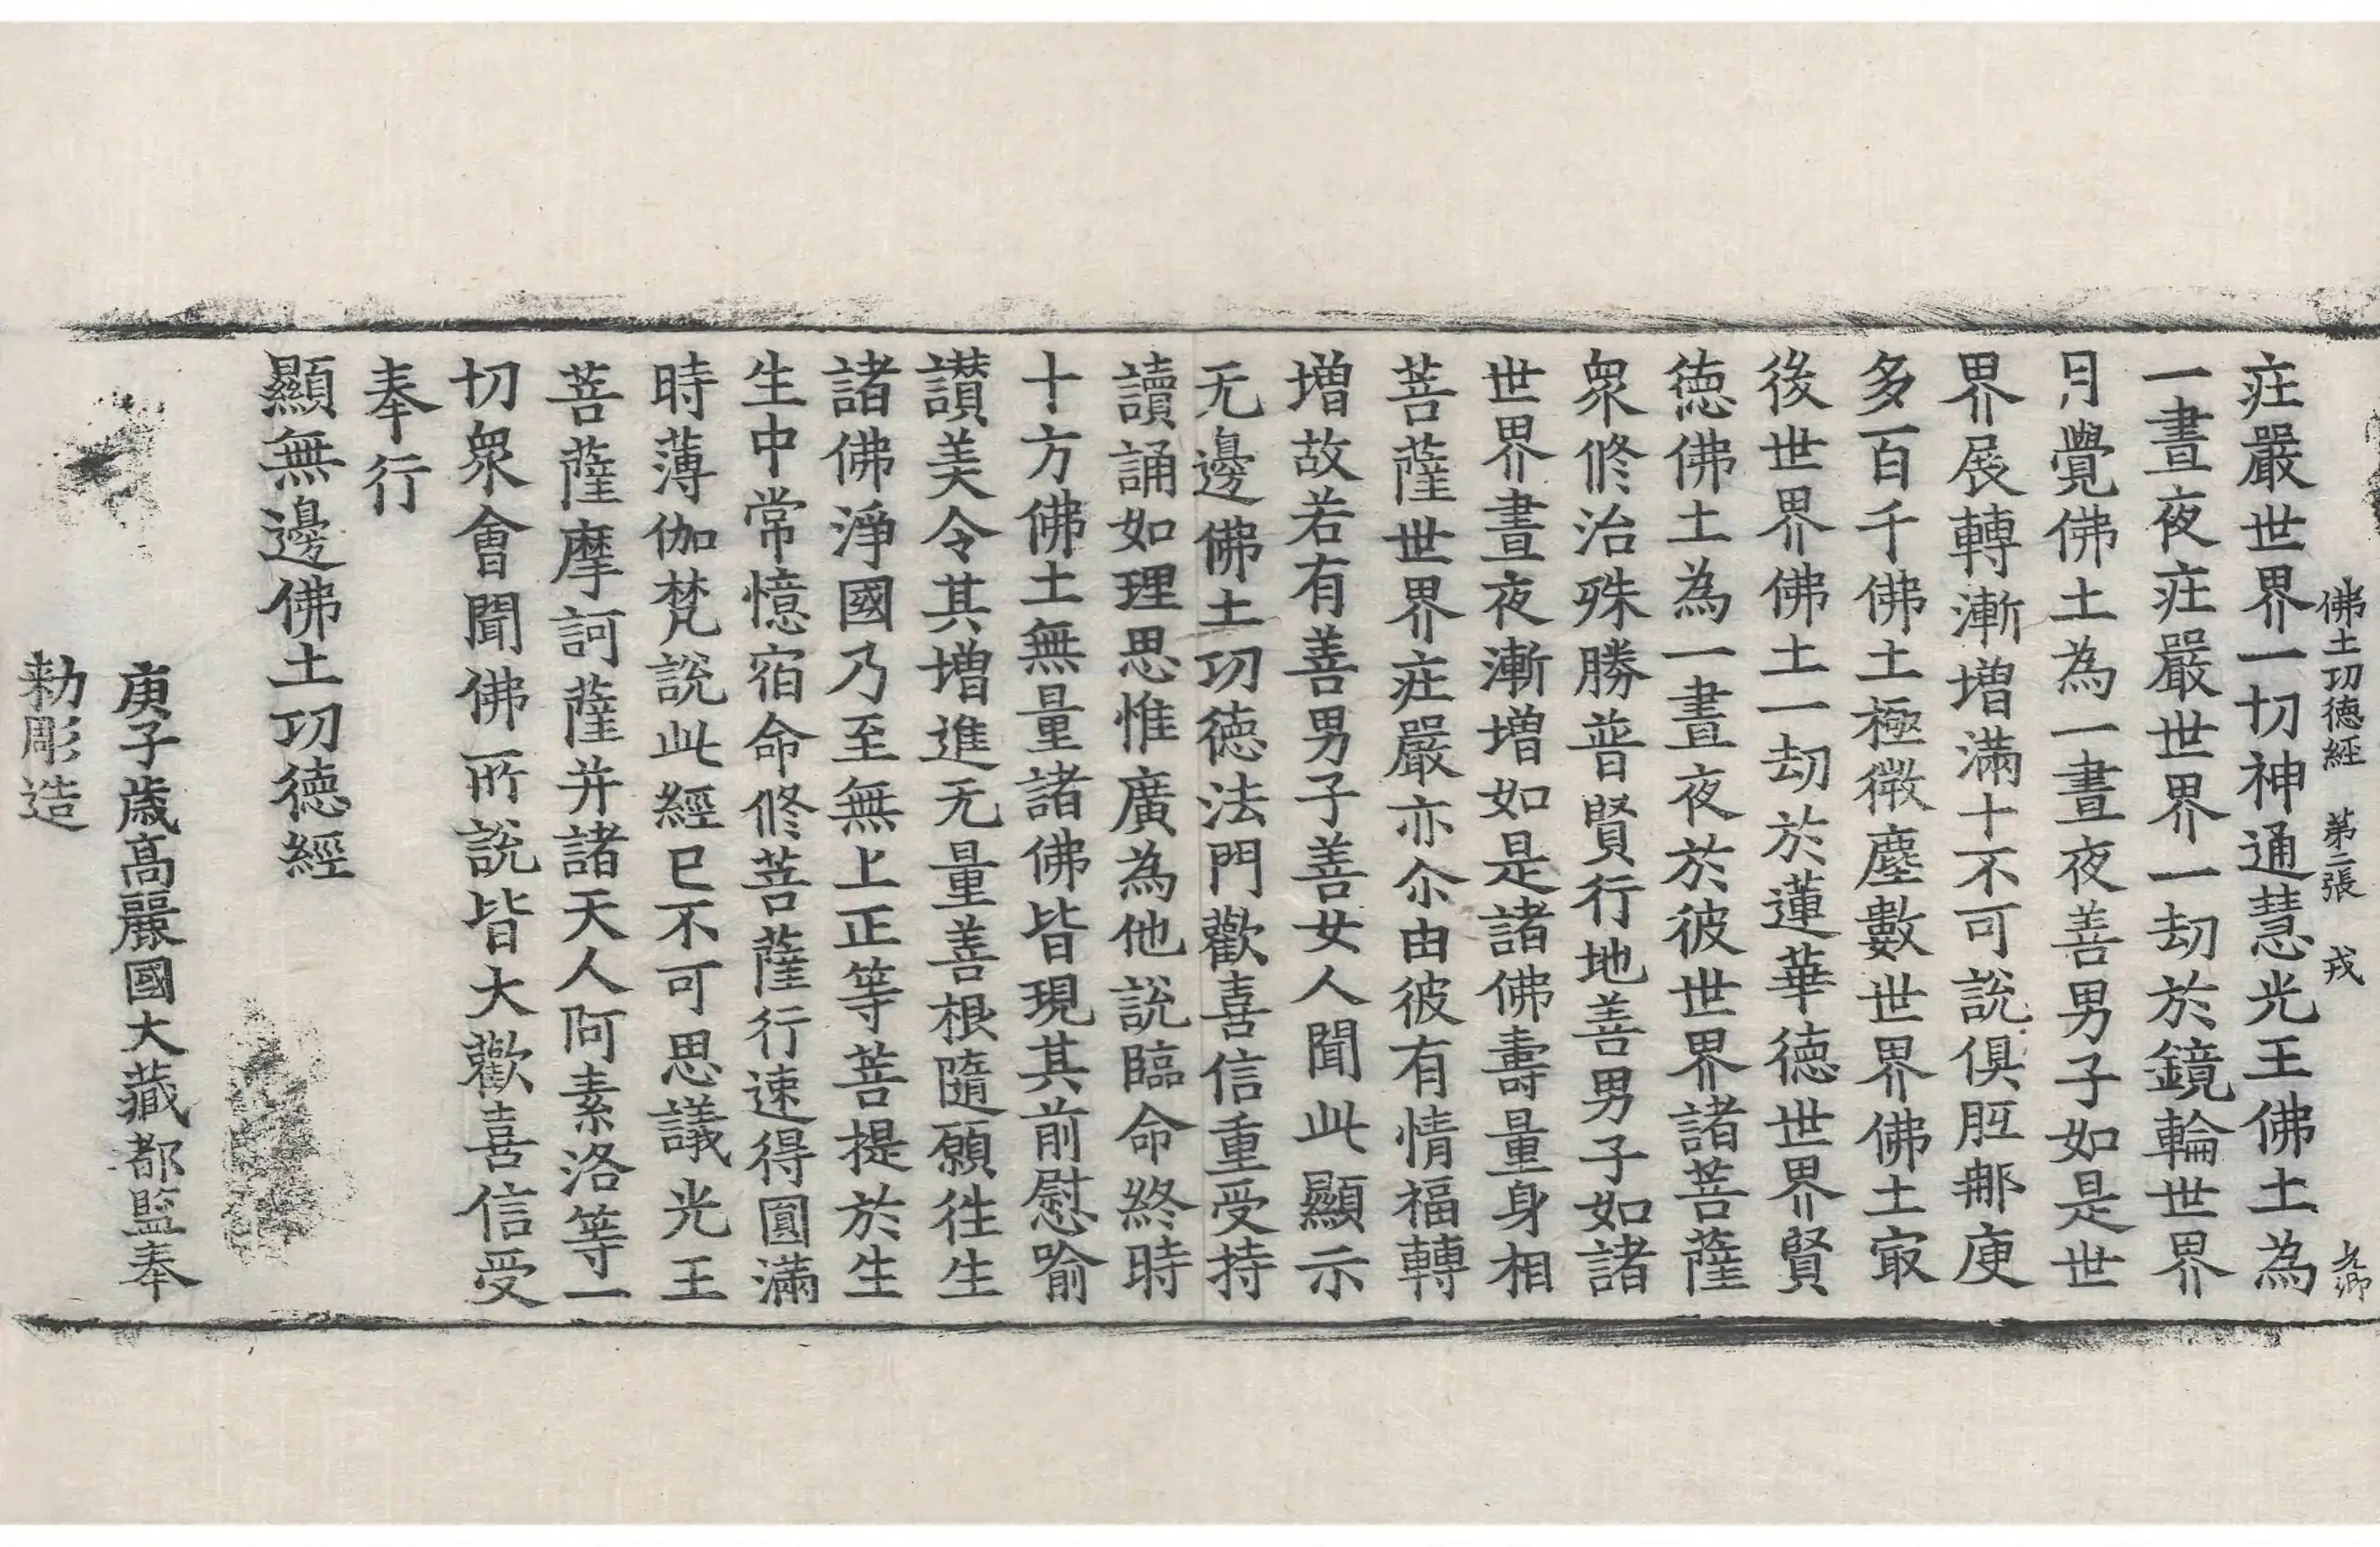 佛土功德經 第二張 戎
光卿
庄嚴世界一切神通慧光王佛土為
一晝夜庄嚴世界一劫於鏡輪世界
月覺佛土為一晝夜善男子如是世
界展轉漸增滿十不可說俱胝那庾
多百千佛土極微塵數世界佛土冣
後世界佛土一劫於蓮華德世界賢
德佛土為一晝夜於彼世界諸菩薩
衆修治殊勝普賢行地善男子如諸
世界晝夜漸增如是諸佛壽量身相
菩薩世界庄嚴亦尒由彼有情福轉
增故若有善男子善女人聞此顯示
无邊佛土功德法門歡喜信重受持
讀誦如理思惟廣為他說臨命終時
十方佛土無量諸佛皆現其前慰喻
讃美令其增進无量善根隨願往生
諸佛淨國乃至無上正等菩提於生
生中常憶宿命修菩薩行速得圓滿
時薄伽梵說此經已不可思議光王
菩薩摩訶薩并諸天人阿素洛等一
切衆會聞佛所說皆大歡喜信受
奉行
顯無邊佛土功德經
庚子歲高麗國大藏都監奉
勑彫造